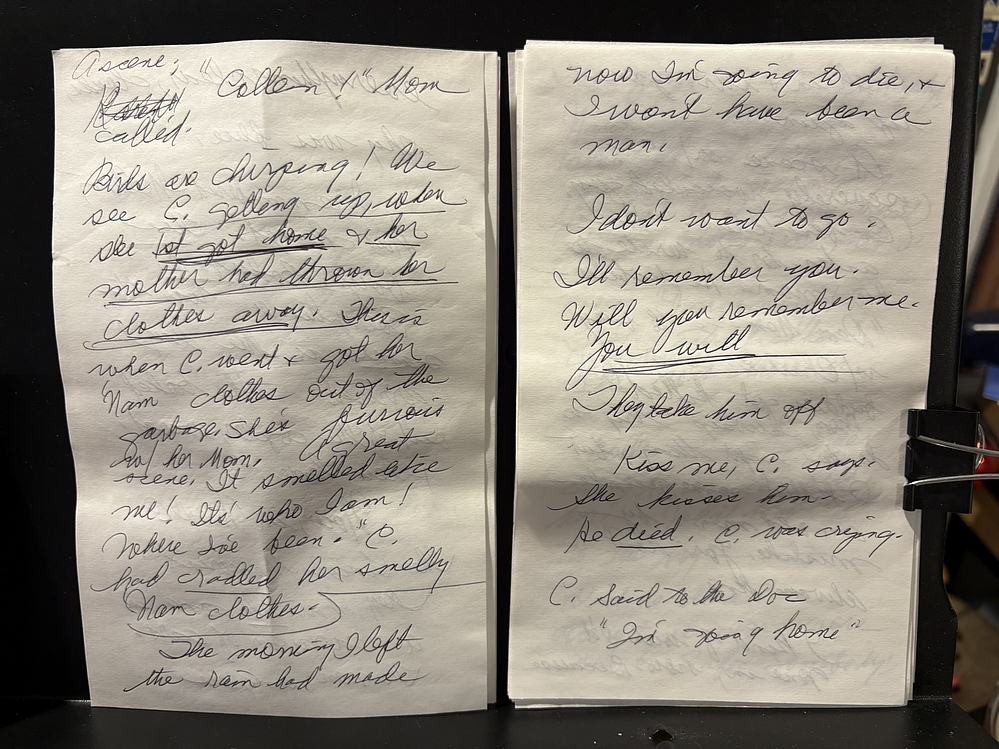 A scene; "Colleen" Mom
called.
Birds are chirping! We
see C. getting up, when
she 1st got home & her
mother had thrown her
clothes away. This is
when C. went & got her
'Nam clothes out of the
garbage. She's furious
w/ her Mom. A great
scene. It smelled like
me! It's who I am!
Where I've been." C.
had cradled her smelly
Nam clothes.
The morning I left
the rain had made
now I'm going to die, &
I won't have been a
man.
I don't want to go.
I'll remember you.
Will you remember me.
You will
They take him off
Kiss me, C. says.
She kisses him.
He died. C. was crying.
C. said to the Doc
"I'm going home"